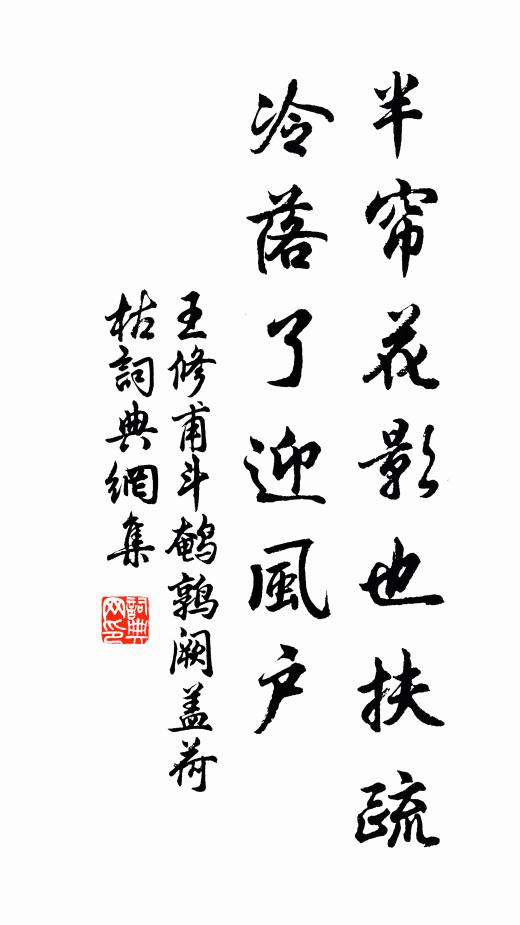 半帘花影也扶疏
冷落了迎風户
王修甫斗鹌鹑阙盖荷
枯詞典網集
詞典网印